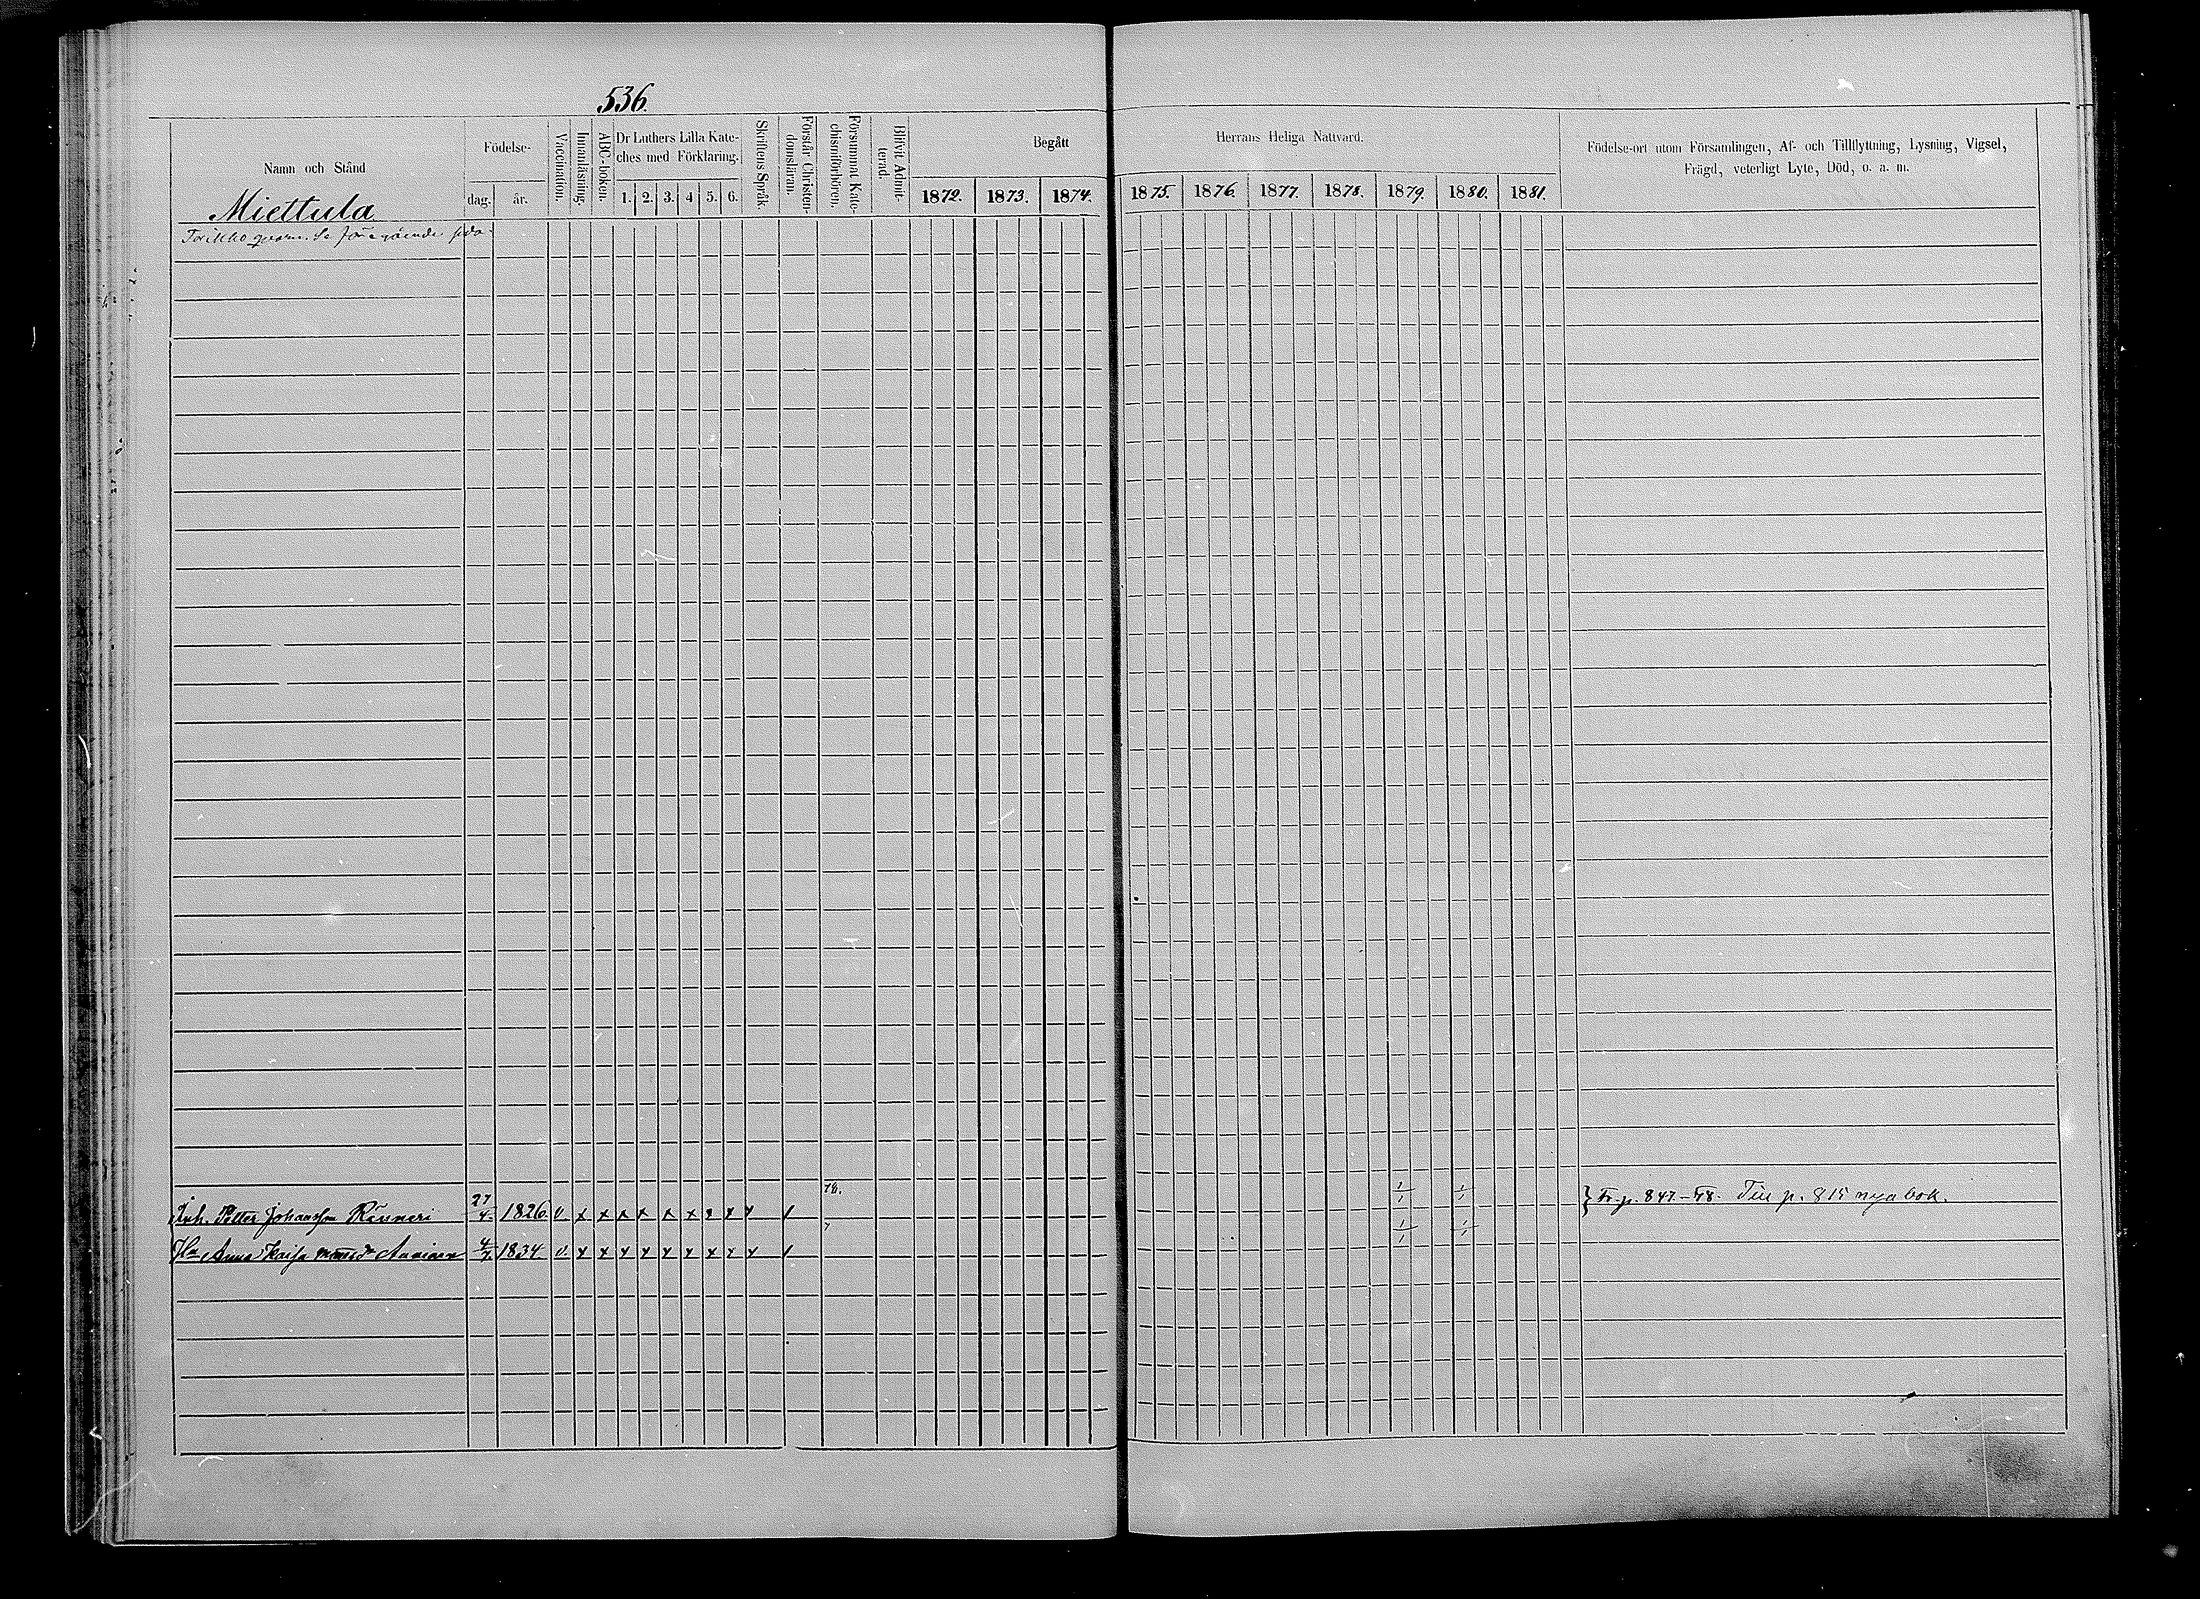 536.
Namn och Stånd
Födelse-
dag. år.
Vaccination.
Innanläsning.
ABC-boken.
Dr Luthers Lilla Kate-
ches med Förklaring.
1. 2. 3. 4 5. 6.
Skriftens Språk.
Förstår Christen-
domsläran.
Försummat Kate-
chismiförhören.
Blifvit Admit-
terad.
Begått
1872. 1873. 1874.
Herrans Heliga Nattvard.
1875. 1876. 1877. 1878. 1879. 1880. 1881.
Födelse-ort utom Församlingen, Af- och Tillflyttning, Lysning, Vigsel,
Frägd, veterligt Lyte, Död, o. a. m.
Miettula
qvarn. Se föregående sida
78.
Inh. Petter Johansson 27/4. 1826. v. x x x x x x x x x / 1/1 1/1 } Fr. p. 847-78. Till p. 815 nya bok.
Hu Anna Kaisa 4/7 1834. v. x x x x x x x x x / 1/1 1/1